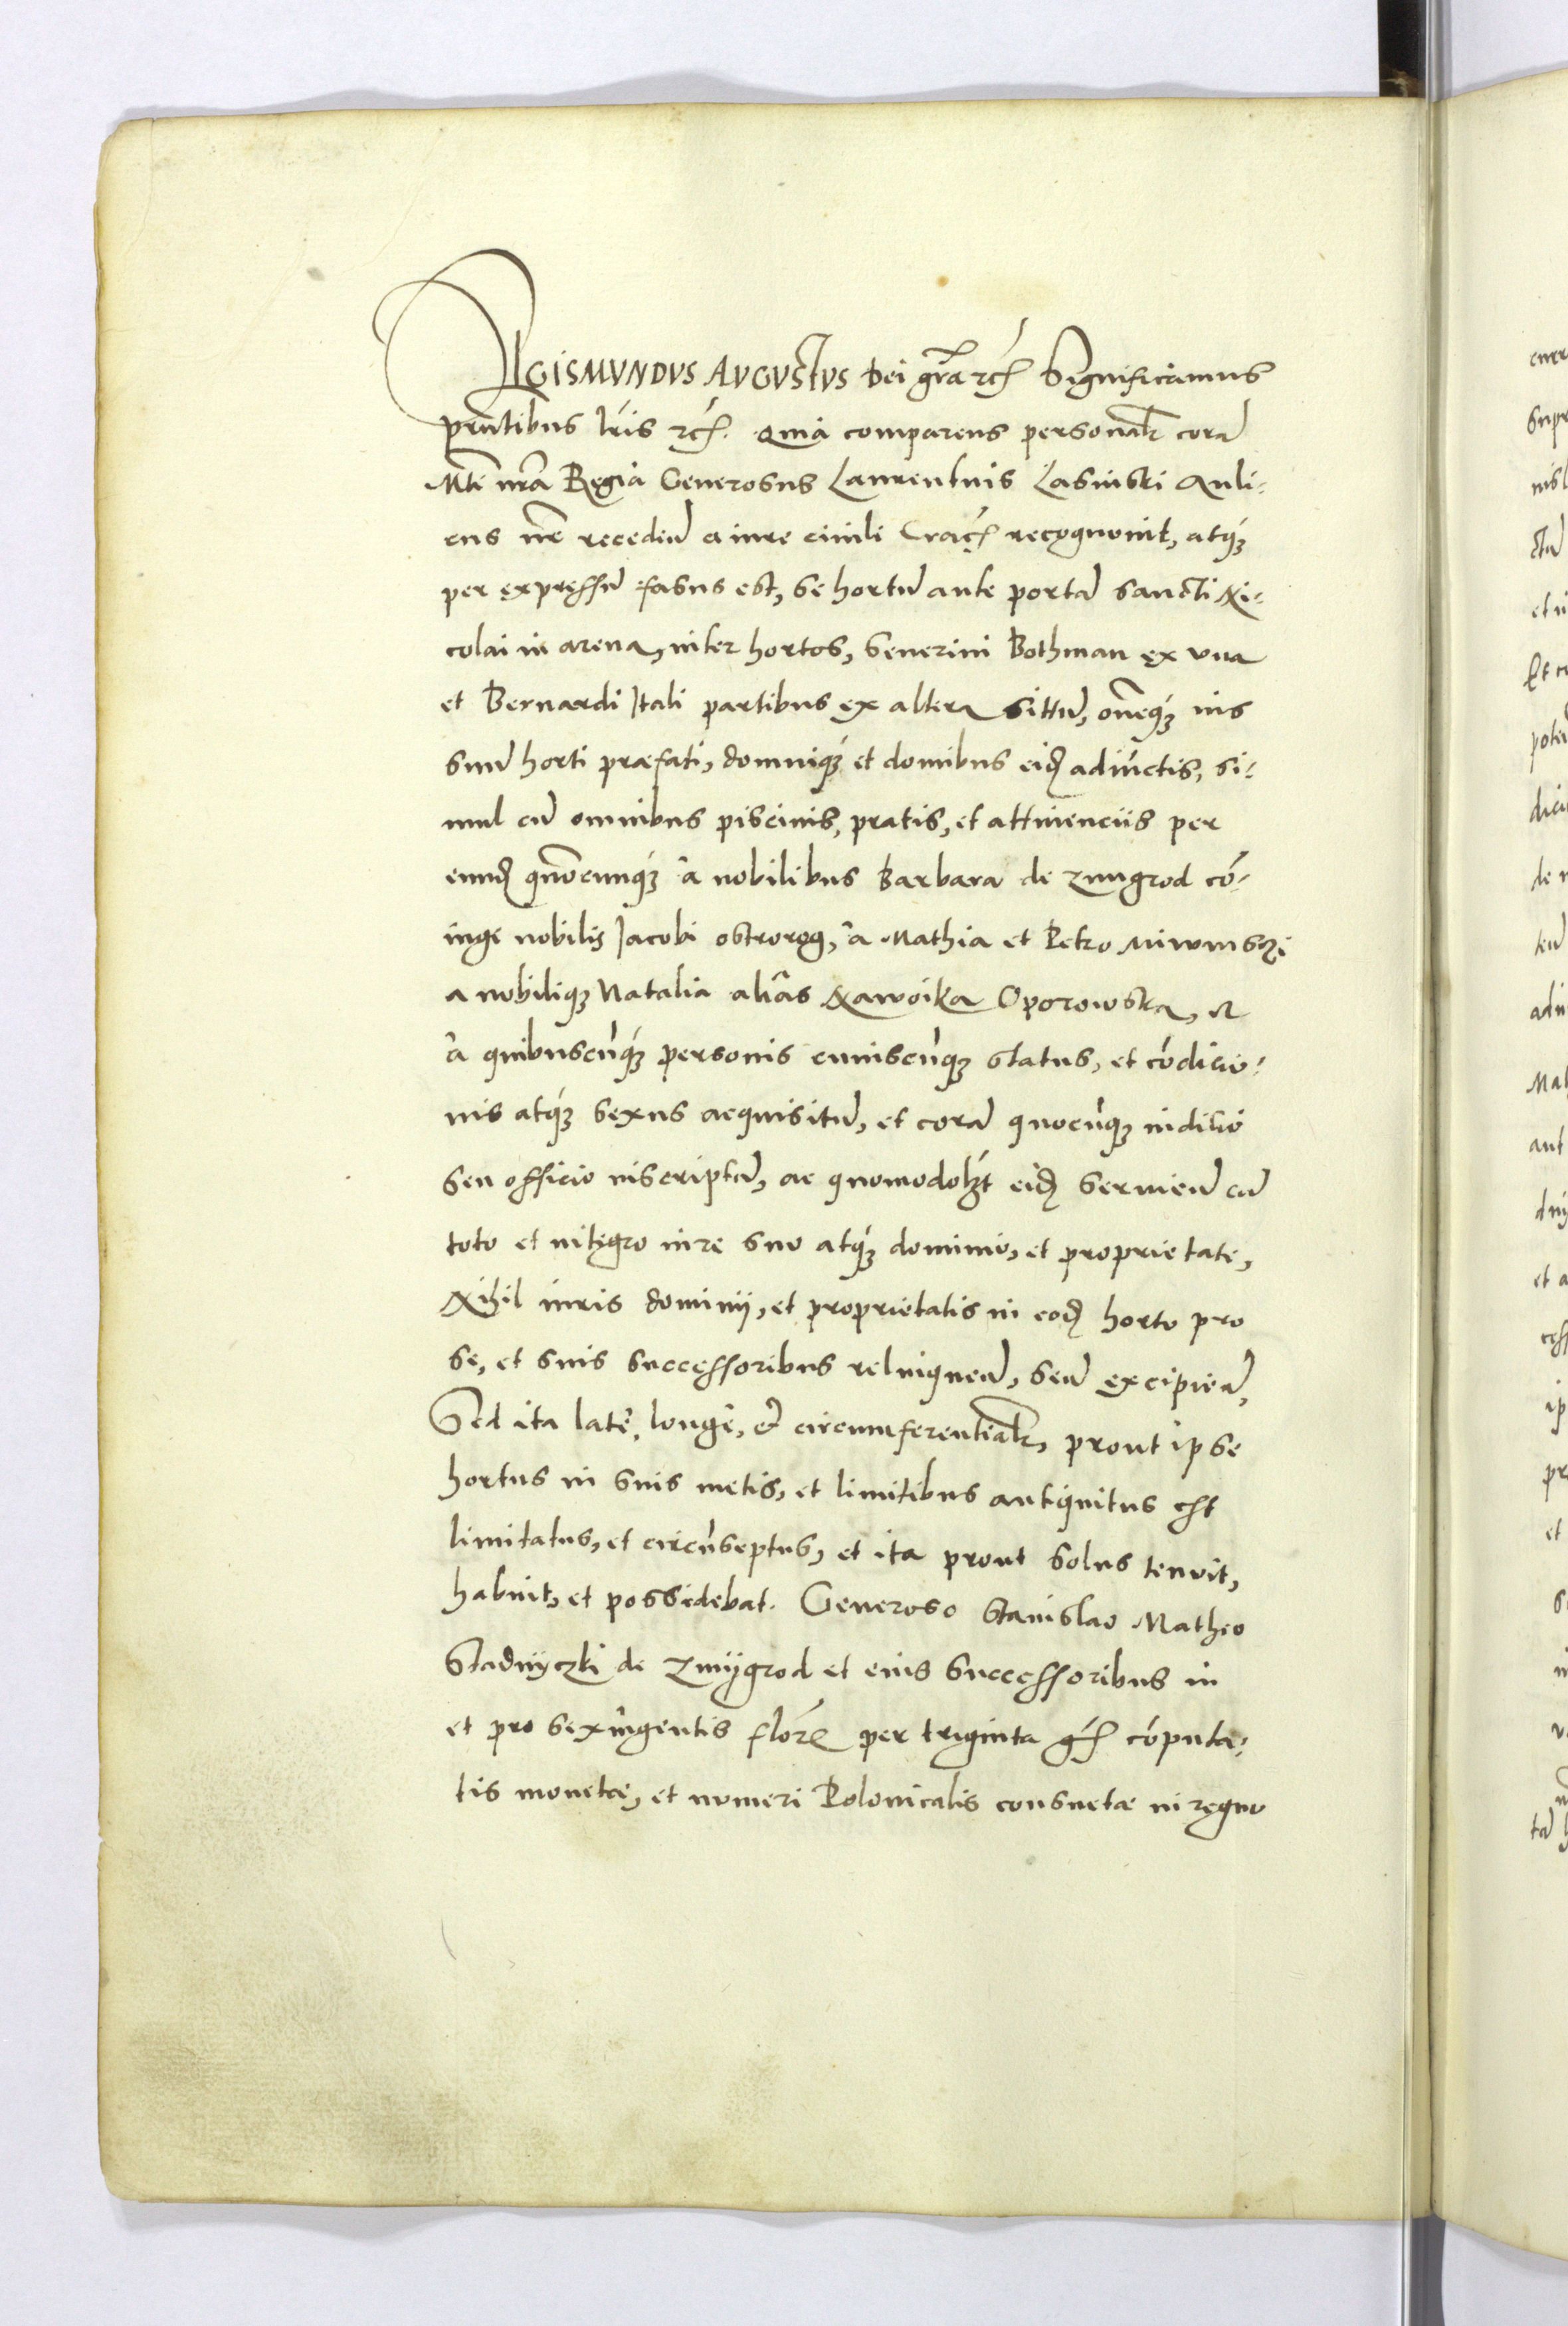 SIGISMVNDVS AVGVSTVS Dei gr̃a etc̃ Significamus
prñtibus lr̃is etc̃. Quia comparens personalr̃ corã
Mte nr̃a Regia Generosus Laurentius Lasinski Auli-
cus nr̃e recedeñ a iure ciuili Crac̃ recognouit, atq́ꝫ
per expressũ fasus est, se hortũ ante portã sancti Ni-
colai in arena, inter hortos, Seuerini Bothman ex vna
et Bernardi Itali partibus ex altera sittũ, om̃eq́ꝫ ius
suũ horti præfati, domuiq́ꝫ et domibus eid̃ adiũctis, si-
mul cũ omnibus piscinis, pratis, et attinenciis per
eund̃ quõcunq́ꝫ à nobilibus Barbara de zmigrod cõ-
iuge nobilis Jacobi ostrorog, à Mathia et Petro
a nobiliqꝫ Natalia aliàs Nawoika Oporowska, et
à quibuscũq́ꝫ personis cuiuscũqꝫ status, et cõdicio-
nis atq́ꝫ sexus acquisitũ, et corã quocũqꝫ iudicio
seu officio inscriptũ, ac quomodolꝫt eid̃ seruieñ cũ
toto et integro iure suo atq́ꝫ dominio, et proprietate,
Nihil iuris dominij, et proprietatis in eod̃ horto pro
se, et suis successoribus relinqueñ, seu excipieñ,
Sed ita latè, longè, et circumferentialr̃, prout ipse
hortus in suis metis, et limitibus antiquitus est
limitatus, et circũseptus, et ita prout solus tenuit,
habuit, et possidebat. Generoso Stanislao Matheo
Stadnyczki de zmijgrod et eius successoribus in
et pro sexingentis florẽ per triginta gr̃ cõputa-
tis monetæ, et numeri Polonicalis consuetæ in regno